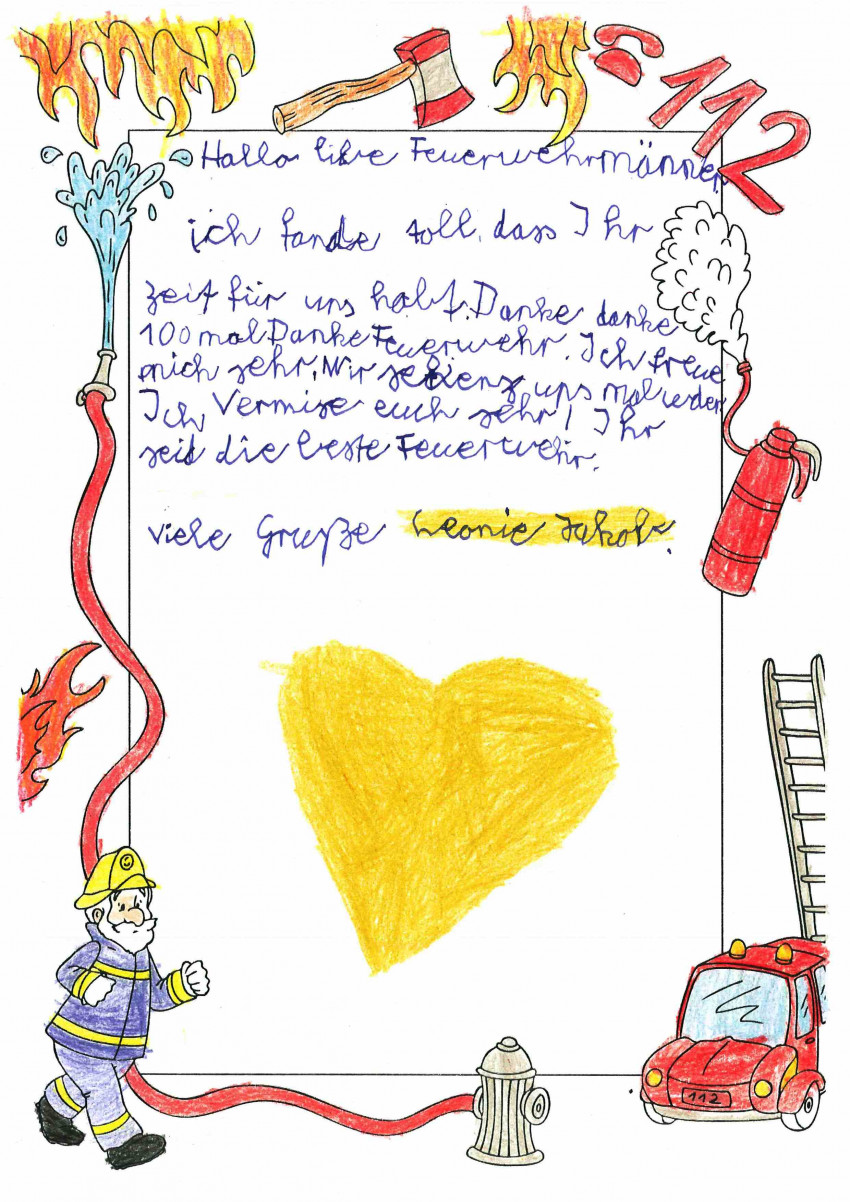 112
Hallo libe Feuerwehrmänner
ich fande toll, dass Ihr
zeit für uns habt. Danke danke
100 mal Danke Feuerwehr. Ich freue
mich sehr. Wir uns mal wieder
Ich Vermise euch sehr! Ihr
seid die beste Feuerwehr.
viele Gruße Leonie Jakob.
112